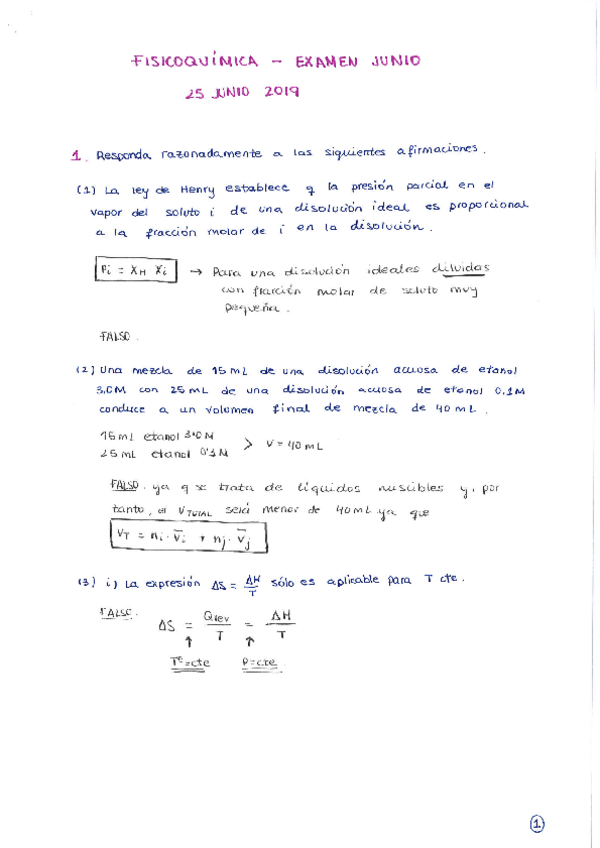 FISICOQUÍMICA - EXAMEN JUNIO
25 JUNIO 2019
1. Responda razonadamente a las siguientes afirmaciones.
(1) La ley de Henry establece q la presión parcial en el
vapor del soluto i de una disolución ideal es proporcional
a la fracción molar de i en la disolución.
Pi = XH Xi → Para una disolución ideales diluidas
con fracción molar de soluto muy
pequeña.
FALSO.
(2) Una mezcla de 15 mL de una disolución acuosa de etanol
3,0M con 25 mL de una disolución acuosa de etanol 0,1M
conduce a un volumen final de mezcla de 40 mL.
15 mL etanol 3'0 M
25 mL etanol 0'1 M > V = 40 mL
FALSO. ya q se trata de líquidos miscibles y, por
tanto, el VTOTAL será menor de 40 mL ya que
VT = ni · V̅i + nj · V̅j
(3) i) La expresión ΔS = ΔH/T sólo es aplicable para T cte.
FALSO. ΔS = Qrev/T = ΔH/T
↑ ↑
Tª=cte P=cte
1